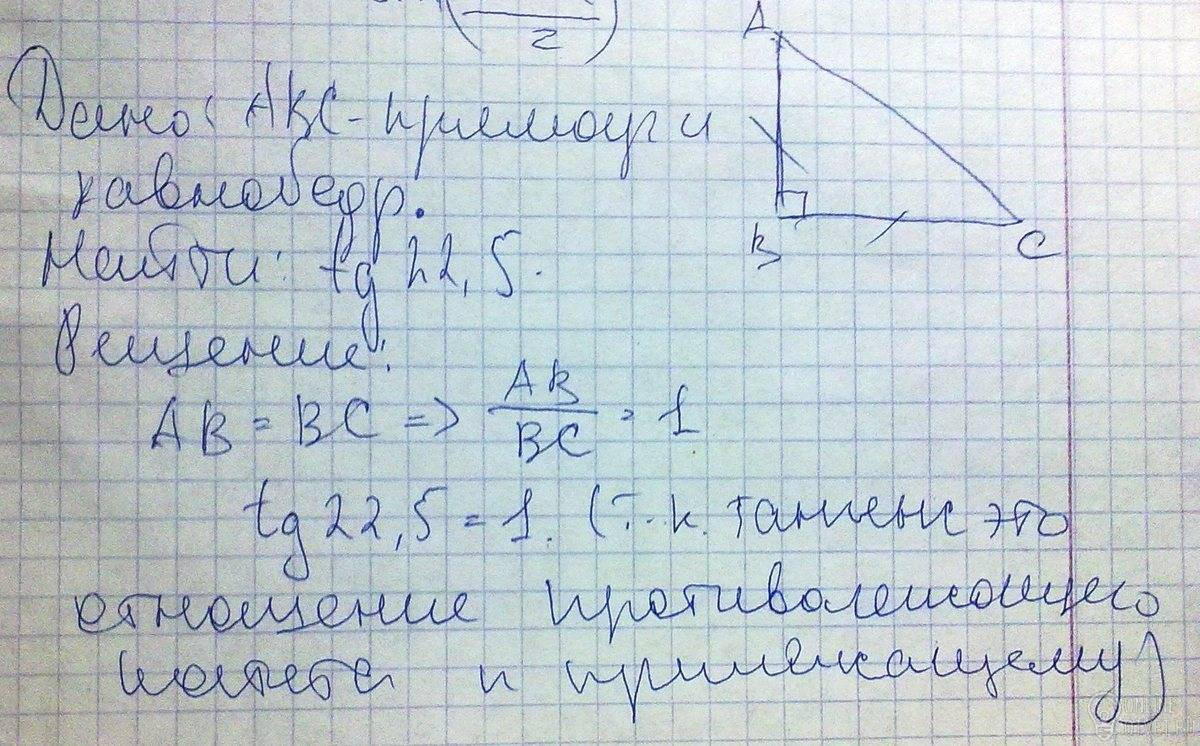 2
A
Дано: ABC - прямоуг и
равнобедр.
B
C
Найти: tg 22,5.
Решение:
AB = BC => AB/BC = 1
tg 22,5 = 1. (т.к. тангенс это
отношение противолежащего
катета к прилежащему)